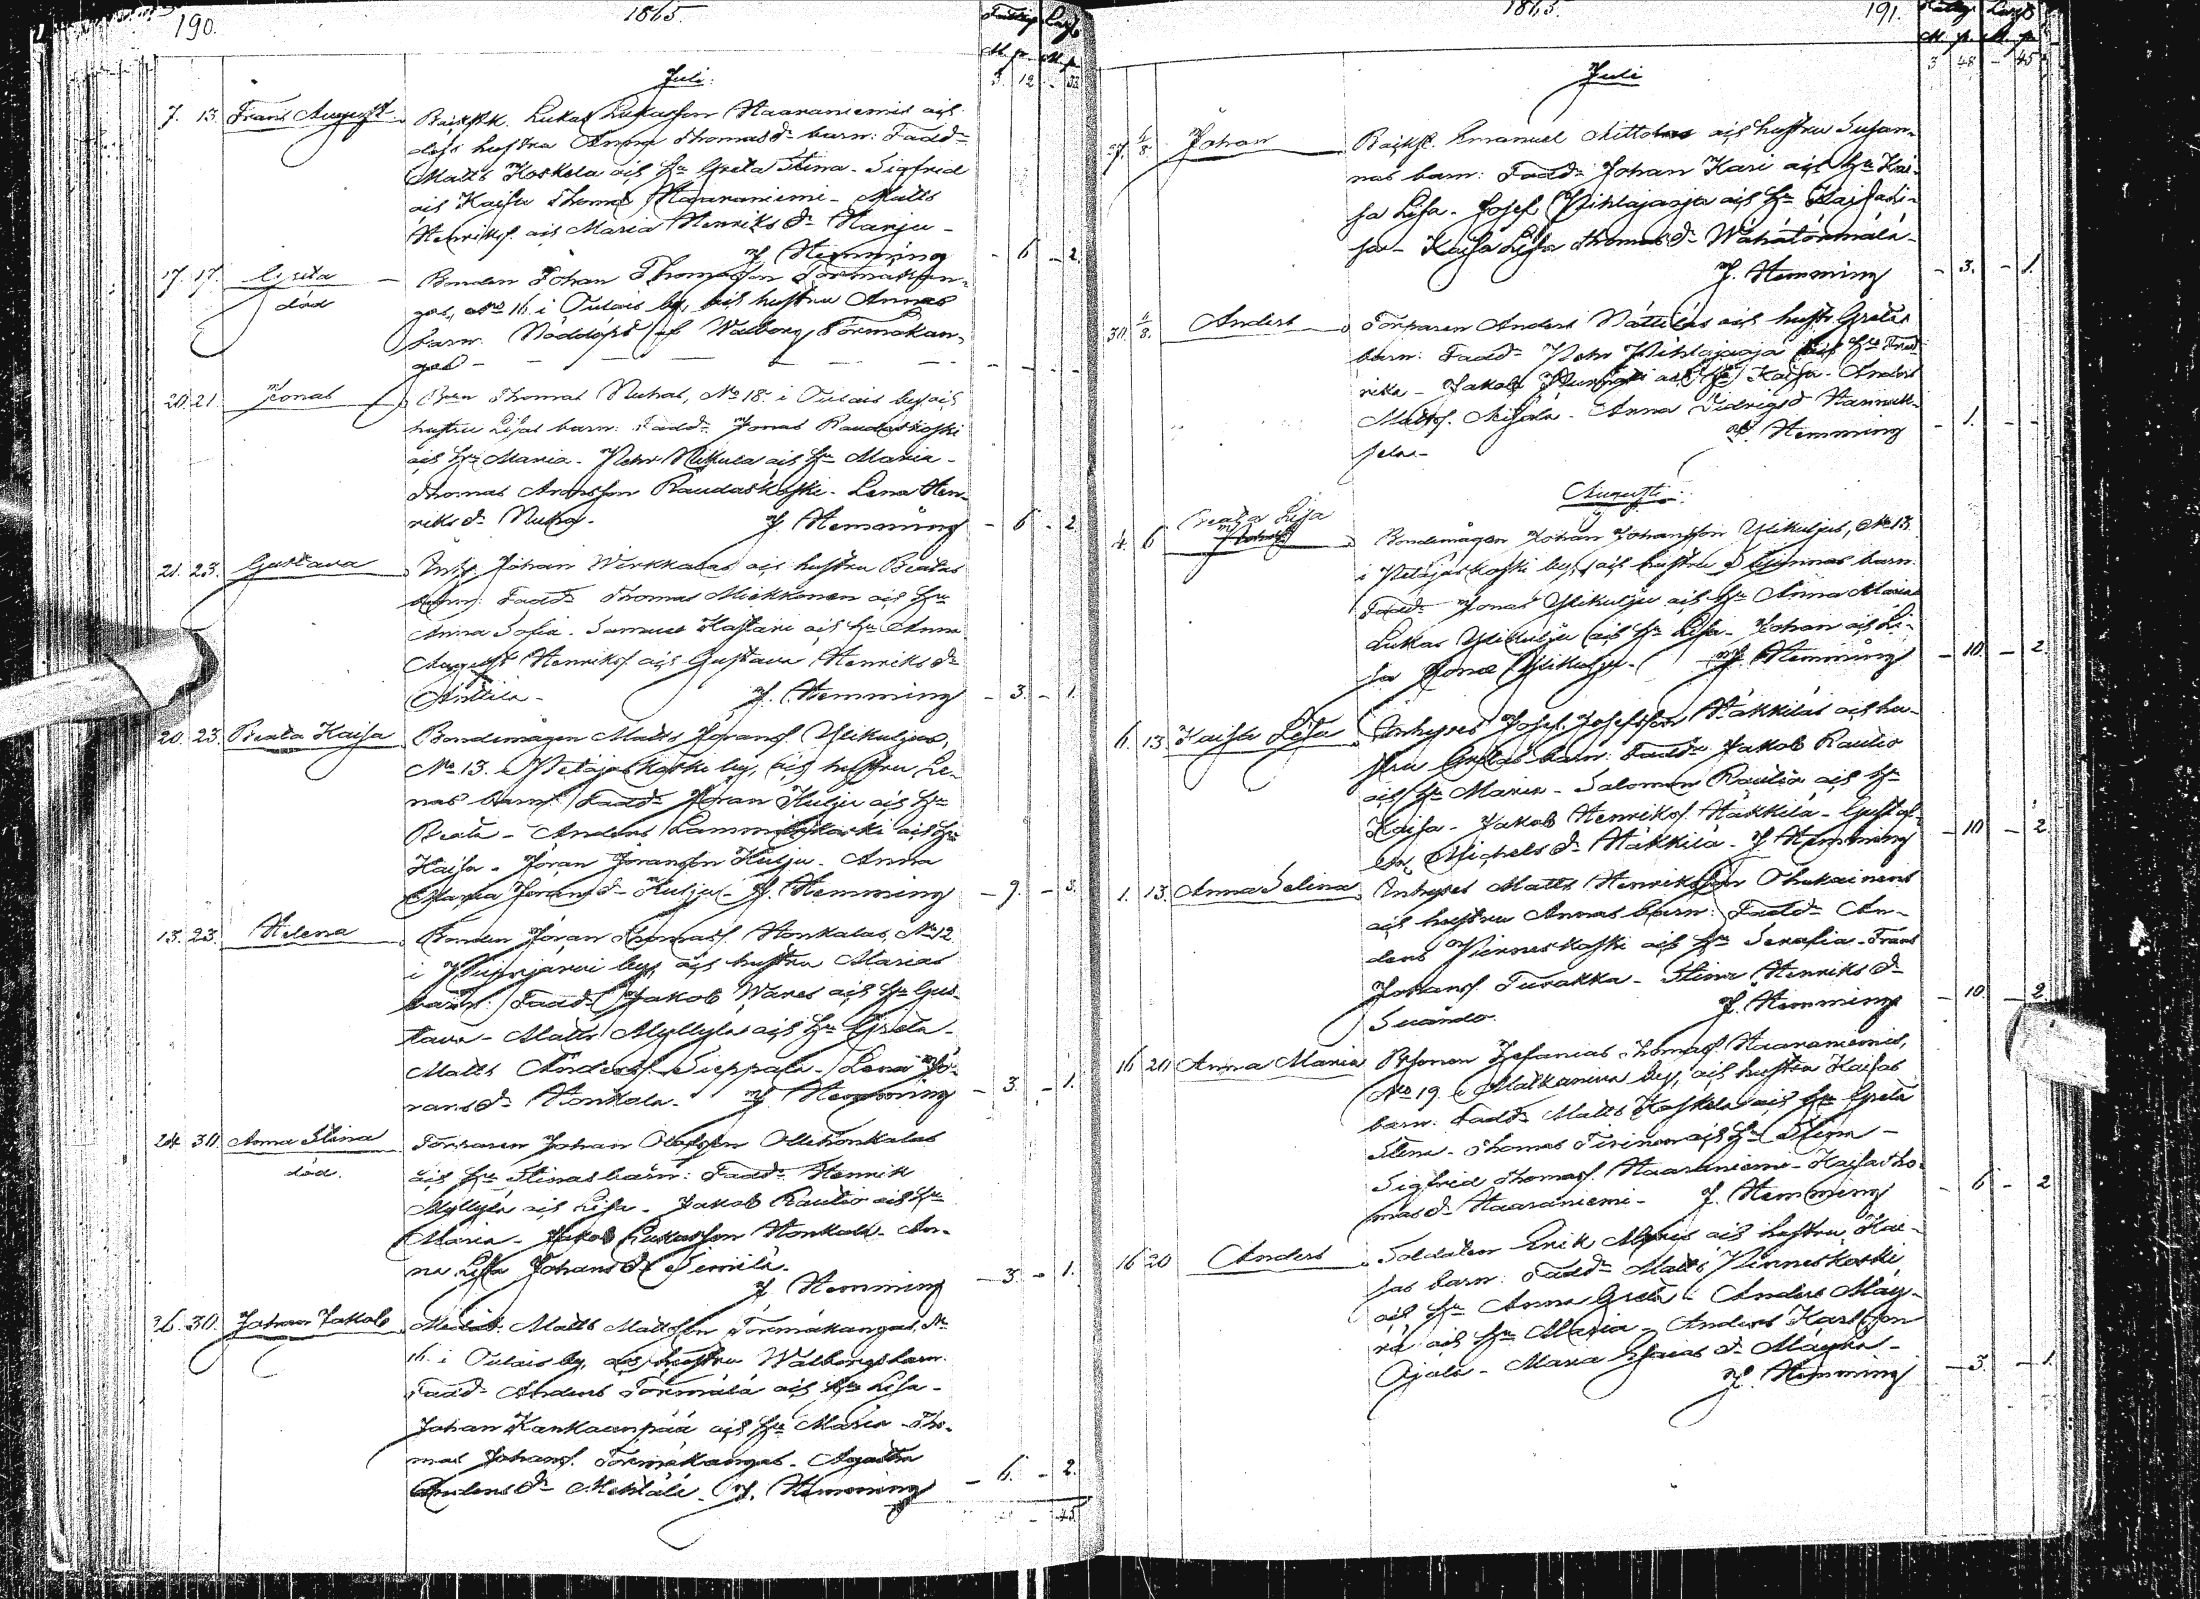 190.
1865.
Fattig Larsb
M. p. M. p.
Juli.
3 12 - 33
7. 13. Frans August
Backstk. Lukas Lukasson Haaraniemis och
dess hustru Anna Thomasd:r barn: Fadd:
Matts Koskela och h:u Greta Stina. Sigfrid
och Kaisa Thomas Haaraniemi - Matts
Henrikss. och Maria Henriksd:r Harju -
J. Hemming - 6 - 2.
17. 17. Greta
död
Bonden Johan Thomasson Törmäkan-
gas, No 16 i Oulais by, och hustru Annas
barn. Nöddöpt af Walborg Törmäkan-
gas -
20. 21. Jonas
Thomas Nuhas, No 18. i Oulais by och
hustru Lisas barn: Fadd: Jonas Raudaskoski
och h:u Maria. Petr Nikula och h:u Maria -
Thomas Aronsson Raudaskoski. Lena Hen-
riksd:r Nuha. J. Hemming - 6 - 2.
21. 23. Gustava
Inhs. Johan Wirkkalas och hustru Beatas
barn: Fadd: Thomas Miekkonen och h:u
Anna Sofia. Samuel Hastari och h:u Anna
August Henrikss. och Gustava Henriksd:r
Anttila - J. Hemming - 3. - 1.
20. 23. Beata Kaisa
Bondemågen Matts Göranss. Ylikuljus,
No 13. i Petäjäskoski by, och hustru Le-
nas barn: Fadd: Göran Kulju och h:u
Beata - Anders Lamminkoski och h:u
Kaisa - Göran Göransson Kulju - Anna
Maria Göransd:r Kulju - J. Hemming - 9. - 3.
13. 23. Helena
Bonden Göran Thomass. Honkalas, No 12
i Piipsjärvi by, och hustru Marias
barn: Fadd: Jakob Wares och h:u Gus-
tava - Matts Myllylä och h:u Greta -
Matts Anderss. Sieppala - Lena Gö-
ransd:r Honkala. J. Hemming - 3 - 1.
24. 30 Anna Stina
död.
Torparen Johan Olofsson Ollihonkalas
och h:u Stinas barn: Fadd: Henrik
Myllylä och Lisa - Jakob Rautio och h:u
Maria - Jakob Lukasson Honkala - An-
na Lisa Johansd:r Similä.
J. Hemming - 3. - 1.
26. 30. Johan Jakob
Matts Mattsson Törmäkangas, No
16. i Oulais by, och hustru Walborgs barn.
Fadd: Anders Törmälä och h:u Lisa -
Johan Kankaanpää och h:u Maria - Tho-
mas Johanss. Törmäkangas - Agatha
Andersd:r Mehtälä - J. Hemming - 6. - 2.
45.
1865.
191.
Fattig Larsb
M. p. M. p.
3 48 - 45
Juli
27. 6/8. Johan
Backst. Emanuel och hustru Susan-
nas barn: Fadd: Johan Kari och h:u Kai-
sa Lisa. Josef Pihlajaoja och h:u
sa - Kaisa Lisa Thomasd:r Wähätörmälä -
J. Hemming - 3. - 1.
30. 6/8. Anders
Torparen Anders Nättiläs och hustr. Gretas
barn: Fadd: Petr Pihlajaoja och h:u Fred-
rika - Jakob och h:u Kaisa - Anders
Mattss. - Anna Hannuk-
sela - J. Hemming - 1. - -
Augusti.
4. 6 Greata Lisa
Bondemågen Johan Johansson Ylikuljus, No 13.
i Petäjäskoski by, och hustru barn.
Fadd: Jonas Ylikulju och h:u Anna Maria
Lukas Ylikulju och h:u Lisa - Johan och Li-
sa Jonae Ylikulju. J. Hemming - 10. - 2.
6. 13. Kaisa Lisa
Inhyses Josef Josefsson Häkkiläs och hu-
stru Gretas barn. Fadd: Jakob Rautio
och h:u Maria - Salomon Rautio och h:u
Kaisa - Jakob Henrikss. Häkkilä - Gustaf-
va Michelsd:r Häkkilä - J. Hemming - 10 - 2.
1. 13. Anna Selina
Inhyses Matts Henriksson Ohukainens
och hustru Annas barn: Fadd: An-
ders Pirneskoski och h:u Serafia - Frans
Johanss. Turakka - Stina Henriksd:r
Suando. J. Hemming - 10 - 2.
16 20 Anna Maria
Zefanias Thomass. Haaraniemis,
No 19 i Matkaniva by, och hustru Kaisas
barn. Fadd: Matts Koskela och h:u Greta
Stina - Thomas Tirinen och h:u Stina -
Sigfrid Thomass. Haaraniemi - Kaisa Tho-
masd:r Haaraniemi - J. Hemming - 6 - 2
16 20 Anders
Soldaten Erik och hustru Kai-
sas barn: Fadd: Matts Pirneskoski
och h:u Anna Greta - Anders Mäy-
rä och h:u Maria - Anders Karlsson
Ojala - Maria Esaiasd:r Mäyrä -
J. Hemming - 3. - 1.